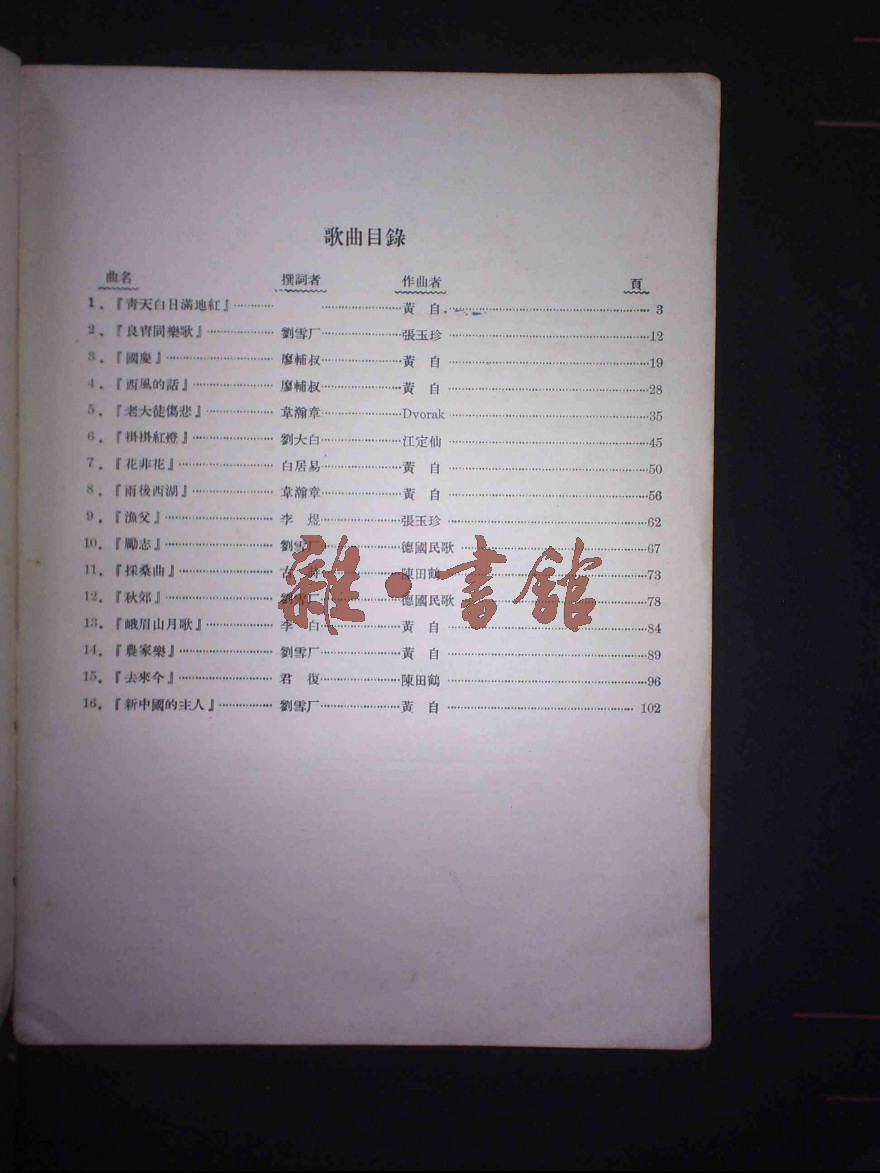 歌曲目錄
曲名 撰詞者 作曲者 頁
1.『靑天白日滿地紅』 黃 自 3
2.『良宵同樂歌』 劉雪厂 張玉珍 12
3.『國慶』 廖輔叔 黃 自 19
4.『西風的話』 廖輔叔 黃 自 28
5.『老大徒傷悲』 韋瀚章 Dvorak 35
6.『掛掛紅燈』 劉大白 江定仙 45
7.『花非花』 白居易 黃 自 50
8.『雨後西湖』 韋瀚章 黃 自 56
9.『漁父』 李 煜 張玉珍 62
10.『勵志』 劉雪厂 德國民歌 67
11.『採桑曲』 古 陳田鶴 73
12.『秋郊』 劉雪厂 德國民歌 78
13.『峨眉山月歌』 李 白 黃 自 84
14.『農家樂』 劉雪厂 黃 自 89
15.『去來今』 君 復 陳田鶴 96
16.『新中國的主人』 劉雪厂 黃 自 102
雜·書館